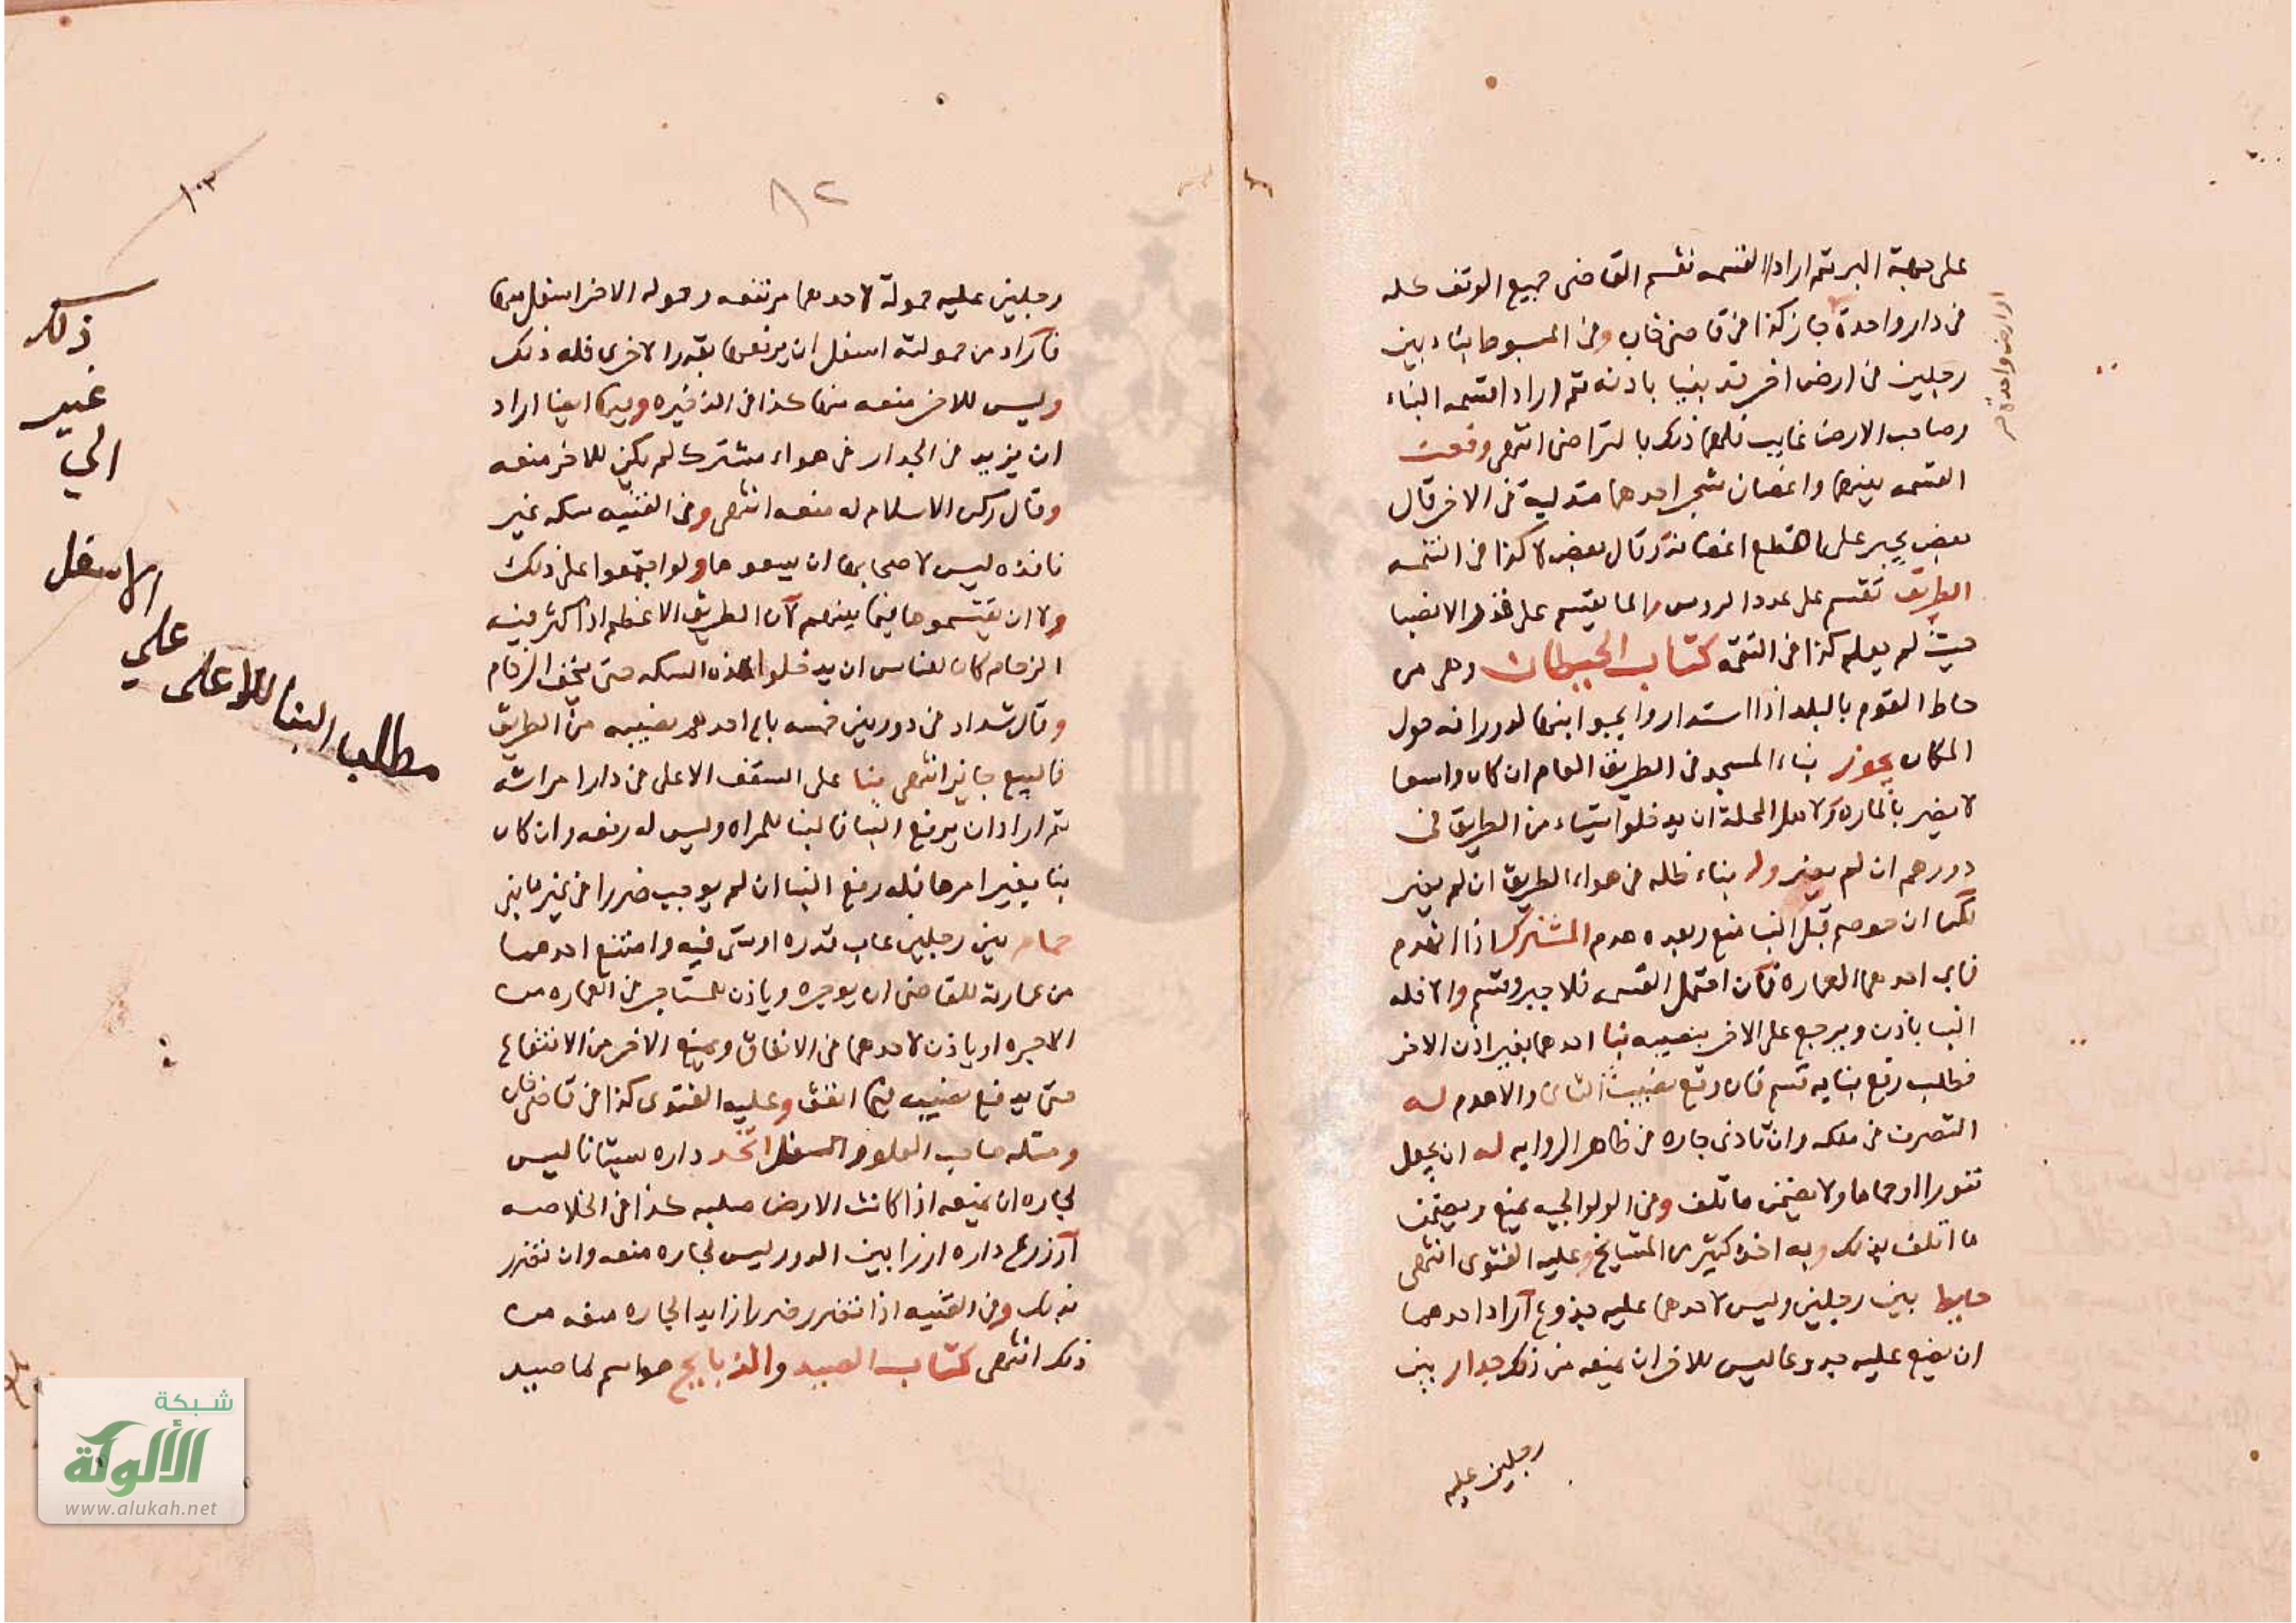 على جهة البر ثم اراد القسمه نقسم القاضى جميع الوقف كله
فى دار واحدة جاز كذا فى قاضى خان وفى المبسوط بناء بين
رجلين فى ارض اخر قد بنيا باذنه ثم اراد القسمه البناء
وصاحب الارض غايب فلهما ذلك بالتراضى انتهى وقعت
القسمه بينهما واغصان شجر احدهما متدلية فى الاخر قال
بعض يجبر على قطع اغصانه وقال بعض لا كذا فى التتمه
الطريق تقسم على عدد الروس والما يقسم على قدر الانصبا
حيث لم يعلم كذا فى التتمه كتاب الحيطان وهى من
حاط القوم بالبلد اذا استداروا بجوانبها لدورانه حول
المكان يجوز بناء المسجد فى الطريق العام ان كان واسعا
لا يضر بالماره ولاهل المحلة ان يدخلوا شيئا من الطريق فى
دورهم ان لم يضر وله بناء ظله فى هواء الطريق ان لم يضر
لكن ان خوصم قبل البنا منع وبعده هدم المشترك اذا انهدم
فابى احدهما العماره فان احتمل القسمه فلا جبر وقسم والا فله
البنا باذن ويرجع على الاخر بنصيبه بنا احدهما بغير اذن الاخر
فطلب رفع بنايه قسم فان وقع نصيب الثانى والا هدم له
التصرف فى ملكه وان تاذى جاره فى ظاهر الروايه له ان يجعل
تنورا او حماما ولا يضمن ما تلف وفى الولوالجيه يمنع ويضمن
ما اتلف بذلك وبه اخذ كثير من المشايخ وعليه الفتوى انتهى
حايط بين رجلين وليس لاحدهما عليه جذوع اراد احدهما
ان يضع عليه جذوعا ليس للاخر ان يمنعه من ذلك جدار بين
رجلين عليه
٨٢
١٠٣
رجلين عليه حمولة لاحدهما مرتفعه وحوله الاخر اسفل منها
فاراد من حمولته اسفل ان يرفعها بقدر الاخرى فله ذلك
وليس للاخر منعه منها كذا فى الذخيره وفيها ايضا اراد
ان يزيد فى الجدار فى هواء مشترك لم يكن للاخر منعه
وقال ركن الاسلام له منعه انتهى وفى القنيه سكه غير
نافذه ليس لاصحابها ان يبيعوها ولو اجتمعوا على ذلك
ولا ان يقتسموها فيما بينهم لان الطريق الاعظم اذا كثر فيه
الزحام كان للناس ان يدخلوا هذه السكه حتى يخف الزحام
وقال شداد فى دور بين خمسه باع احدهم نصيبه من الطريق
فالبيع جايز انتهى بنا على السقف الاعلى فى دار امراته
ثم اراد ان يرفع البنا فالبنا للمراه وليس له رفعه وان كان
بنا بغير امرها فله رفع البنا ان لم يوجب ضررا فى غير ما بنى
حمام بين رجلين عاب قدره او شى فيه وامتنع احدهما
من عمارته للقاضى ان يوجره وياذن للمستاجر فى العماره من
الاجره او ياذن لاحدهما فى الانفاق ويمنع الاخر من الانتفاع
حتى يدفع نصيبه فيما انفق وعليه الفتوى كذا فى قاضى خان
ومثله صاحب العلو والسفل اتخذ داره بستانا ليس
لجاره ان يمنعه اذا كانت الارض صلبه كذا فى الخلاصه
زرع داره ارزا بين الدور ليس لجاره منعه وان تضرر
بذلك وفى القنيه اذا تضرر ضررا زايدا لجاره منعه من
ذلك انتهى كتاب الصيد والذبايح هو اسم لما صيد
مطلب البنا للاعلى
على
الاسفل
الى
غير
ذلك
شبكة
الألوكة
www.alukah.net